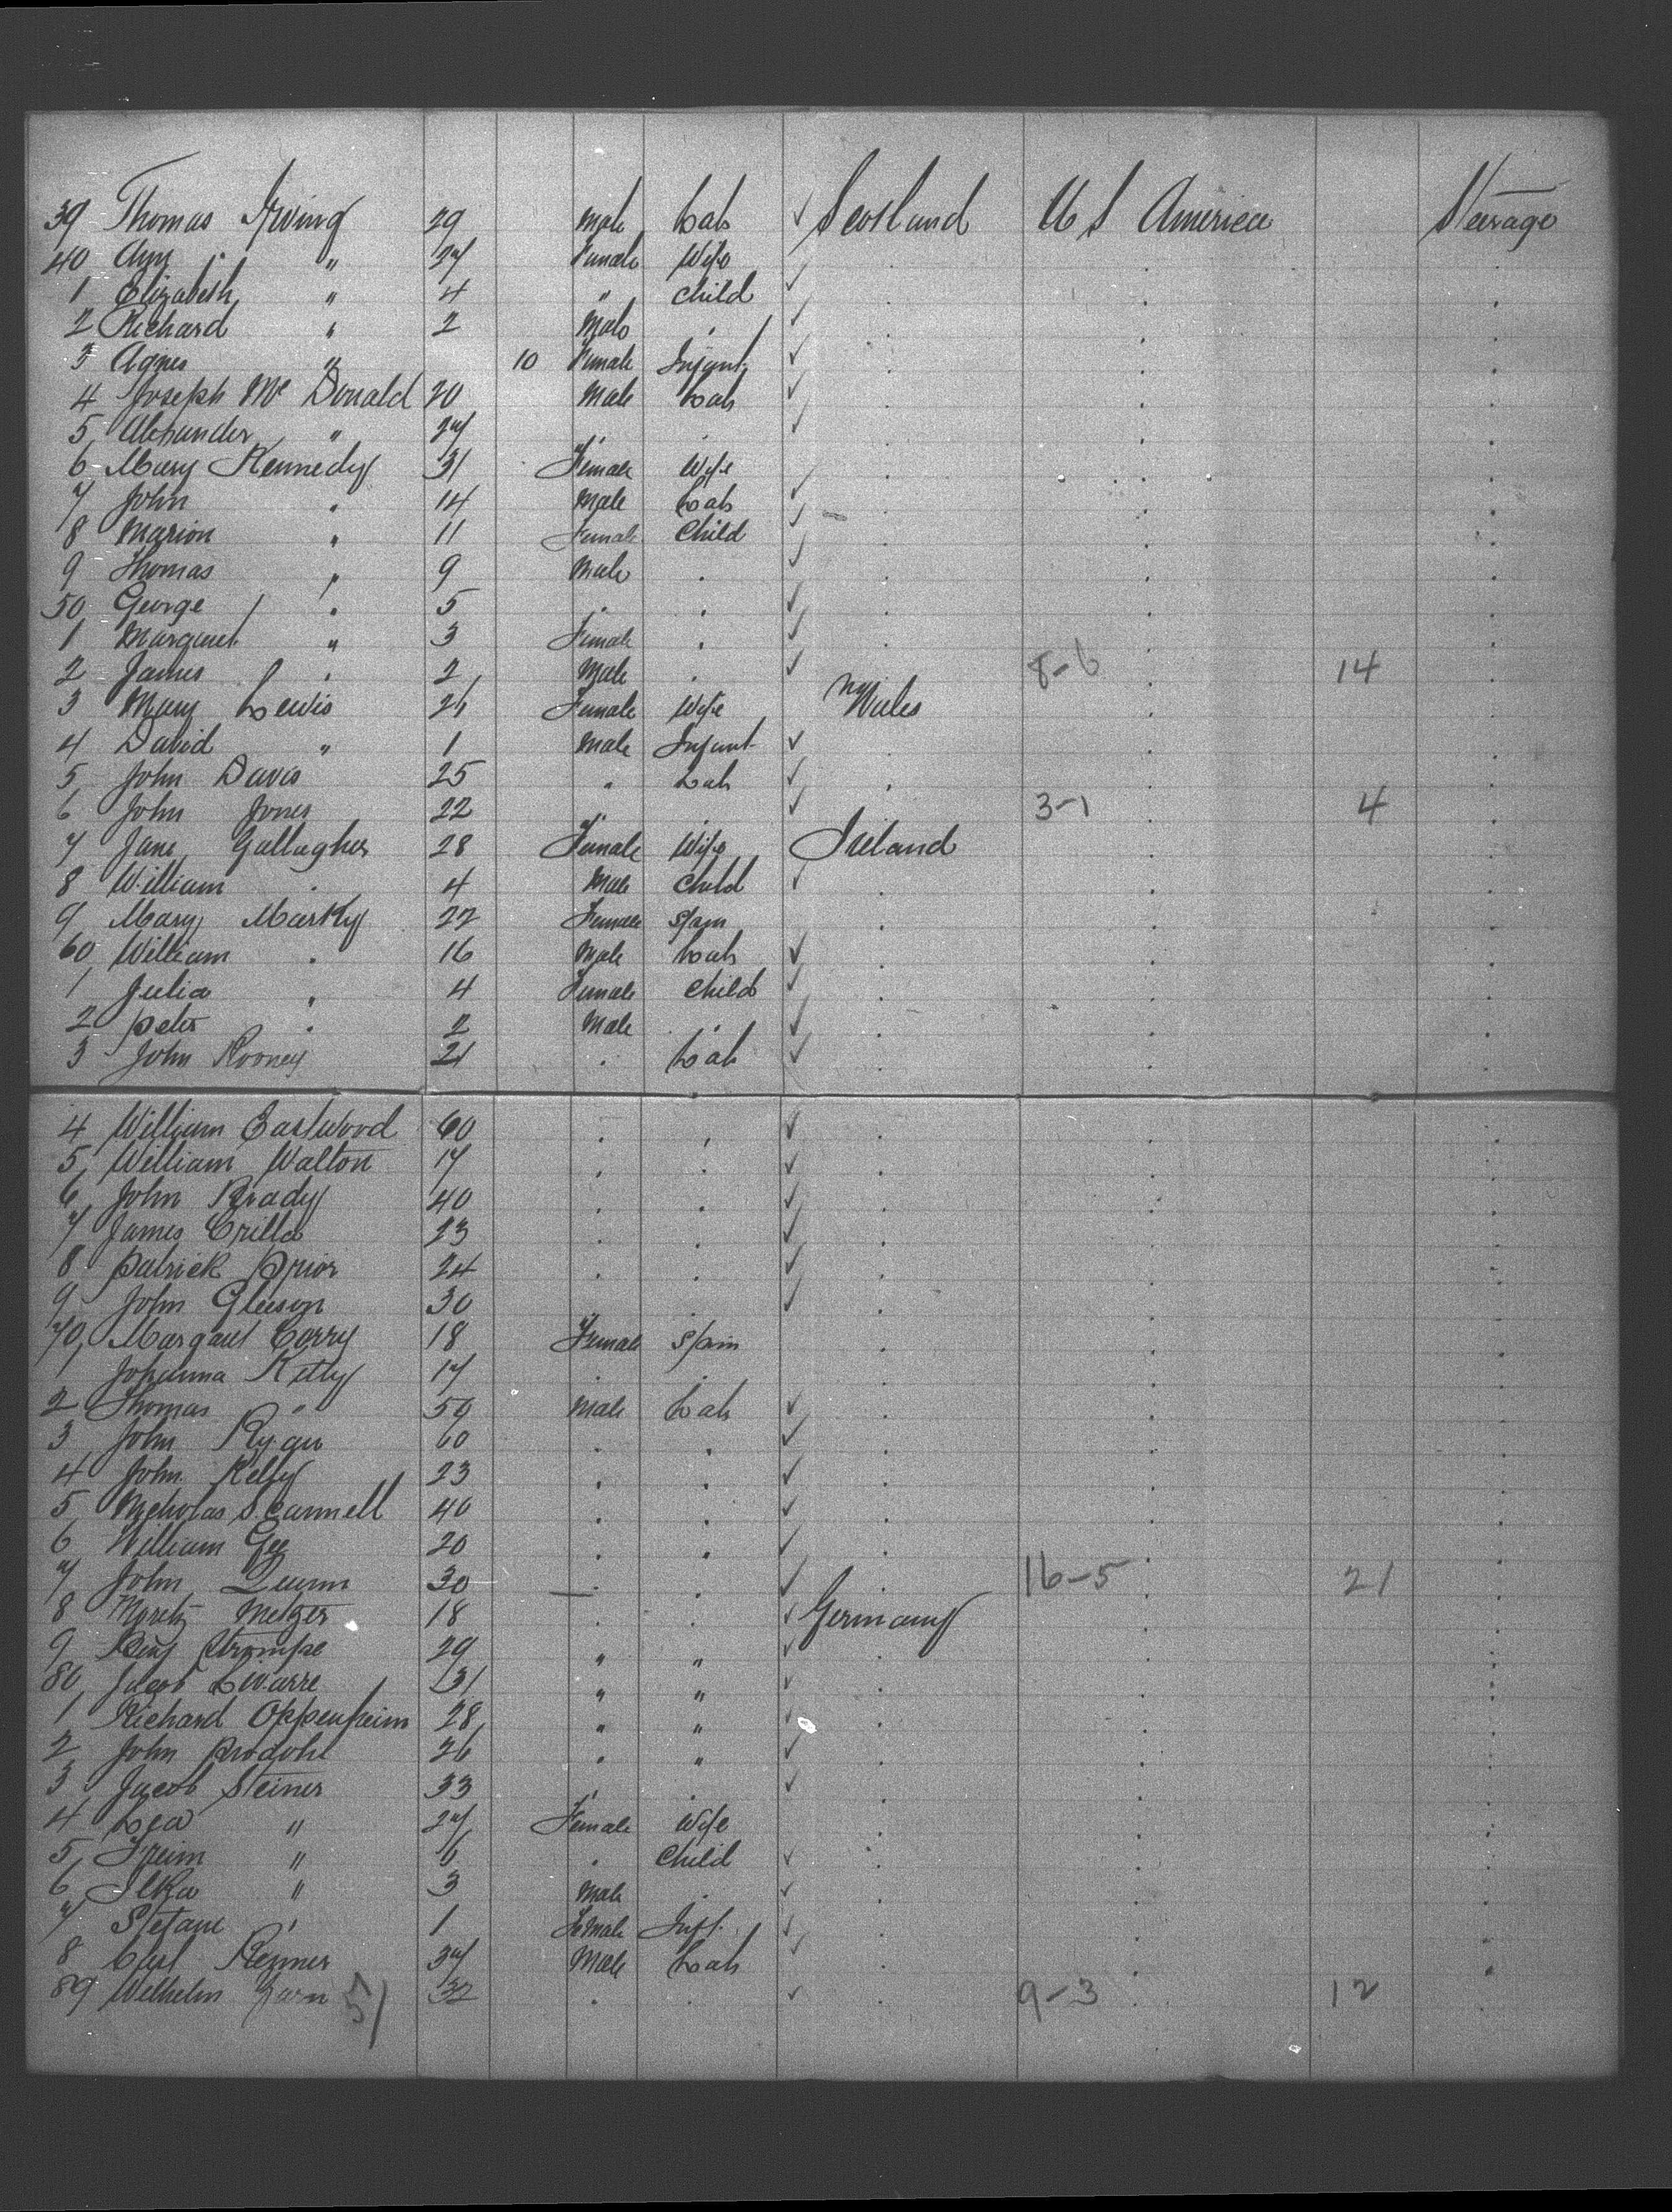 39 Thomas Irving 29 Male Lab ✓ Scotland U S America Steerage
40 Ann " 27 Female Wife
1 Elizabeth " 4 " Child ✓
2 Richard " 2 Male . ✓
3 Agnes " 10 Female Infant ✓
4 Joseph Mc Donald 20 Male Lab ✓
5 Alexander " 27 . . ✓
6 Mary Kennedy 31 Female Wife
7 John " 14 Male Lab ✓
8 Marion " 11 Female Child ✓
9 Thomas " 9 Male . ✓
50 George " 5 . . ✓
1 Margaret " 3 Female . ✓
2 James " 2 Male . ✓ 8-6 14
3 Mary Lewis 26 Female Wife Wales
4 David " 1 Male Infant ✓
5 John Davis 25 " Lab ✓
6 John Jones 22 " . ✓ 3-1 4
7 Jane Gallagher 28 Female Wife Ireland
8 William . 4 Male Child ✓
9 Mary Marky 22 Female Spin
60 William . 16 Male Lab ✓
1 Julia " 4 Female Child ✓
2 Peter . 2 Male . ✓
3 John Rooney 21 . Lab ✓
4 William Eastwood 60 . . ✓
5 William Walton 17 . . ✓
6 John Brady 40 . . ✓
7 James 23 . . ✓
8 Patrick Prior 24 . . ✓
9 John Gleeson 30 . . ✓
70 Margaret Corry 18 Female Spin
1 Johanna Kelly 17 . .
2 Thomas " 50 Male Lab ✓
3 John Ryan 60 . . ✓
4 John Kelly 23 . . ✓
5 Nicholas Scannell 40 . . ✓
6 William Gee 20 . . ✓
7 John Quinn 30 . . ✓ 16-5 21
8 Moritz Metzger 18 . . ✓ Germany
9 29 " " ✓
80 Jacob 31 " " ✓
1 Richard Oppenheim 28 " " ✓
2 John Prodohl 26 " " ✓
3 Jacob Steiner 33 " . ✓
4 Lea " 27 Female Wife
5 " 6 . Child ✓
6 Ilka " 3 Male . ✓
7 Stefani " 1 Female Inft. ✓
8 Carl Renner 37 Male Lab ✓
89 Wilhelm 51 32 . . ✓ 9-3 12